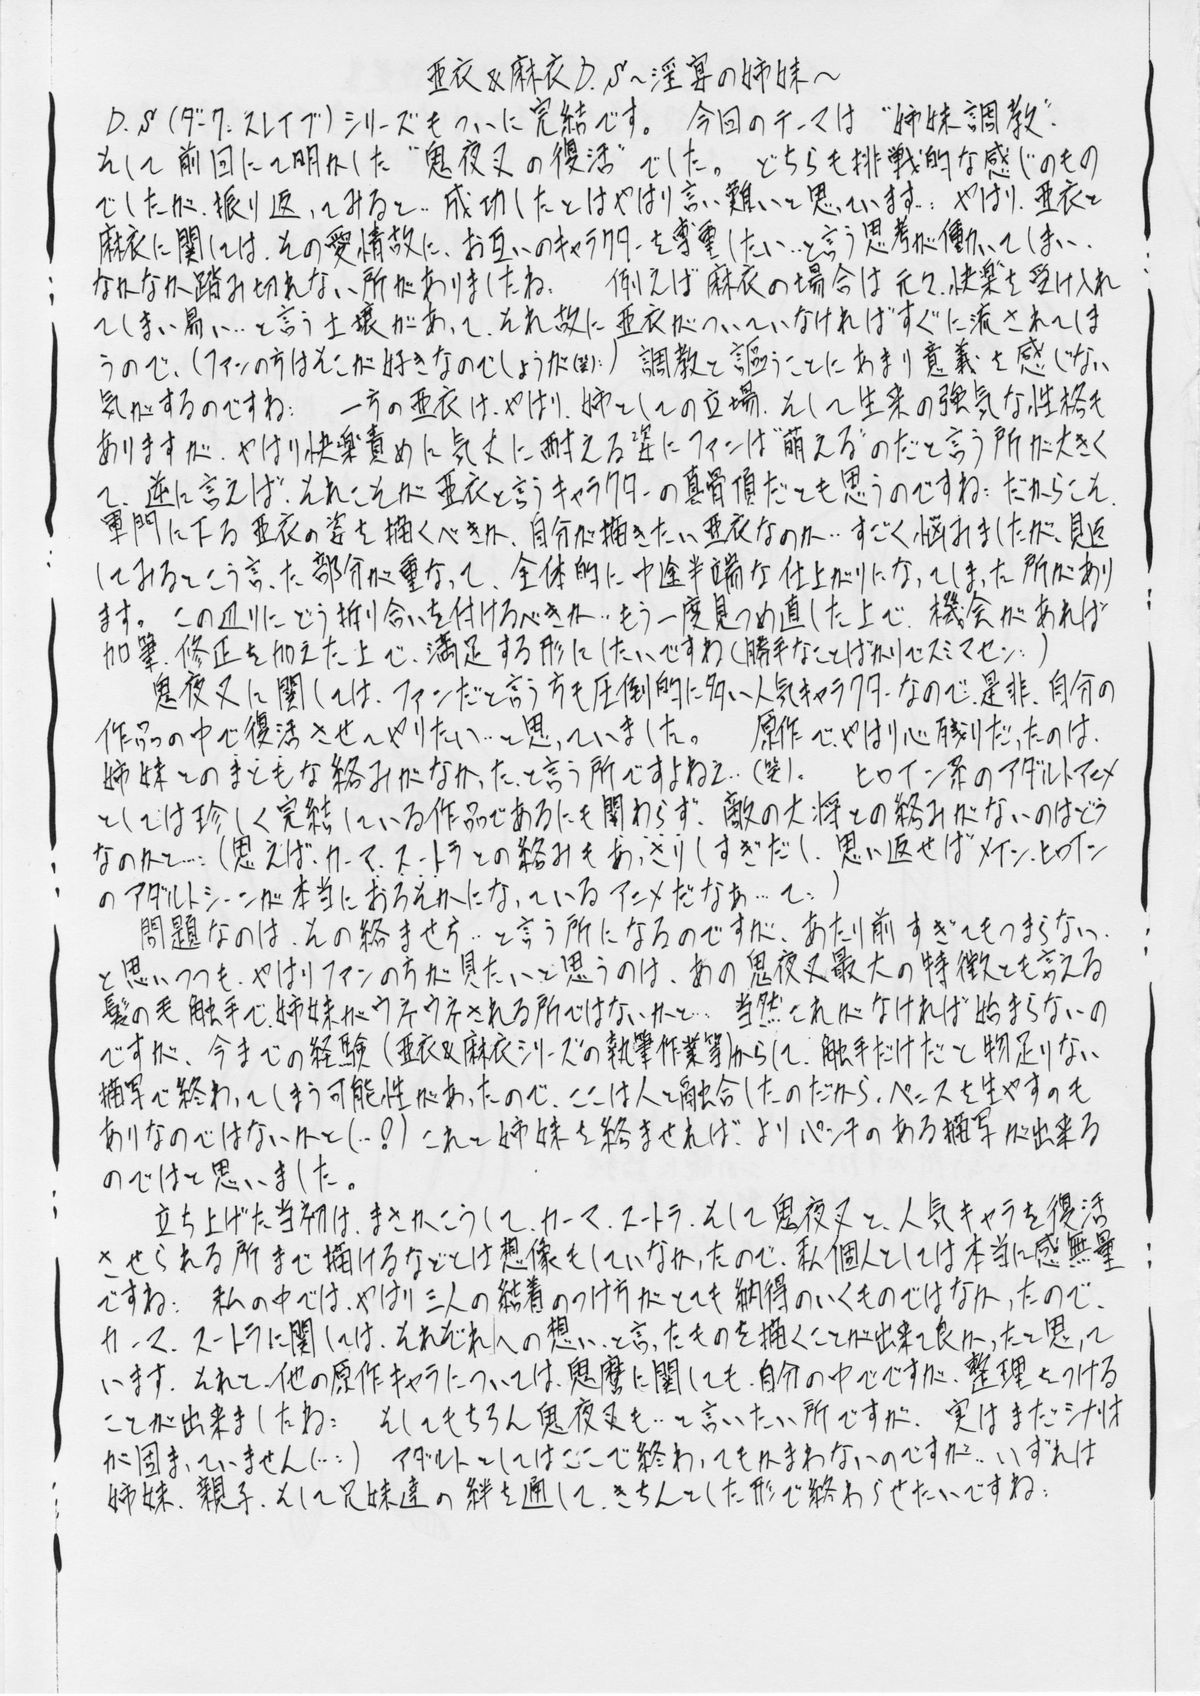 亜衣&麻衣D.S～淫宴の姉妹～
D.S(ダーク.スレイブ)シリーズもついに完結です。 今回のテーマは"姉妹調教"
そして前回にて明かした"鬼夜叉の復活"でした。 どちらも挑戦的な感じのもの
でしたが、振り返ってみると‥成功したとはやはり言い難いと思っています‥: やはり、亜衣と
麻衣に関しては、その愛情故に、お互いのキャラクターを尊重したい‥と言う思考が働いてしまい、
なかなか踏み切れない所がありましたね、 例えば麻衣の場合は元々、快楽を受け入れ
てしまい易い‥と言う土壌があって、それ故に亜衣がついていなければすぐに流されてしま
うので、(ファンの方はそこが好きなのでしょうが(笑):) 調教と謳うことにあまり意義を感じない
気がするのですね: 一方の亜衣は、やはり、姉としての立場、そして生来の強気な性格も
ありますが、やはり快楽責めに気丈に耐える姿にファンは"萌える"のだと言う所が大きく
て、逆に言えば、それこそが亜衣と言うキャラクターの真骨頂だとも思うのですね: だからこそ、
軍門に下る亜衣の姿を描くべきか、自分が描きたい亜衣なのか‥すごく悩みましたが、見返
してみるとこう言った部分が重なって、全体的に中途半端な仕上がりになってしまった所があり
ます。 この辺りにどう折り合いを付けるべきか‥もう一度見つめ直した上で、機会があれば
加筆、修正を加えた上で、満足する形にしたいですね(勝手なことばかりでスミマセン:)
鬼夜叉に関しては、ファンだと言う方も圧倒的に多い人気キャラクターなので、是非、自分の
作品の中で復活させてやりたい‥と思っていました。 原作で、やはり心残りだったのは、
姉妹とのまともな絡みがなかった、と言う所ですよねェ‥(笑)。 ヒロイン系のアダルトアニメ
としては珍しく完結している作品であるにも関わらず、敵の大将との絡みがないのはどう
なのかと…:(思えば、カーマ、スートラとの絡みもあっさりしすぎだし、思い返せばメイン.ヒロイン
のアダルトシーンが本当におろそかになっているアニメだなぁ…て:)
問題なのは、その絡ませ方‥と言う所になるのですが、あたり前すぎてもつまらない、
と思いつつも、やはりファンの方が見たいと思うのは、あの鬼夜叉最大の特徴とも言える
髪の毛触手で、姉妹がウネウネされる所ではないかと… 当然これがなければ始まらないの
ですが、今までの経験(亜衣&麻衣シリーズの執筆作業等)からして、触手だけだと物足りない
描写で終わってしまう可能性があったので、ここは人と融合したのだから、ペニスを生やすのも
ありなのではないかと(‥?) これと姉妹を絡ませれば、よりパンチのある描写が出来る
のではと思いました。
立ち上げた当初は、まさかこうして、カーマ、スートラ、そして鬼夜叉と、人気キャラを復活
させられる所まで描けるなどとは想像もしていなかったので、私個人としては本当に感無量
ですね: 私の中では、やはり三人の結着のつけ方がとても納得のいくものではなかったので、
カーマ、スートラに関しては、それぞれへの想い、と言ったものを描くことが出来て良かったと思って
います、それと、他の原作キャラについては、鬼麿に関しても、自分の中でですが、整理をつける
ことが出来ましたね: そしてもちろん鬼夜叉も‥と言いたい所ですが、実はまだシナリオ
が固まっていません(…:) アダルトとしてはここで終わってもかまわないのですが‥いずれは
姉妹、親子、そして兄妹達の絆を通して、きちんとした形で終わらせたいですね: